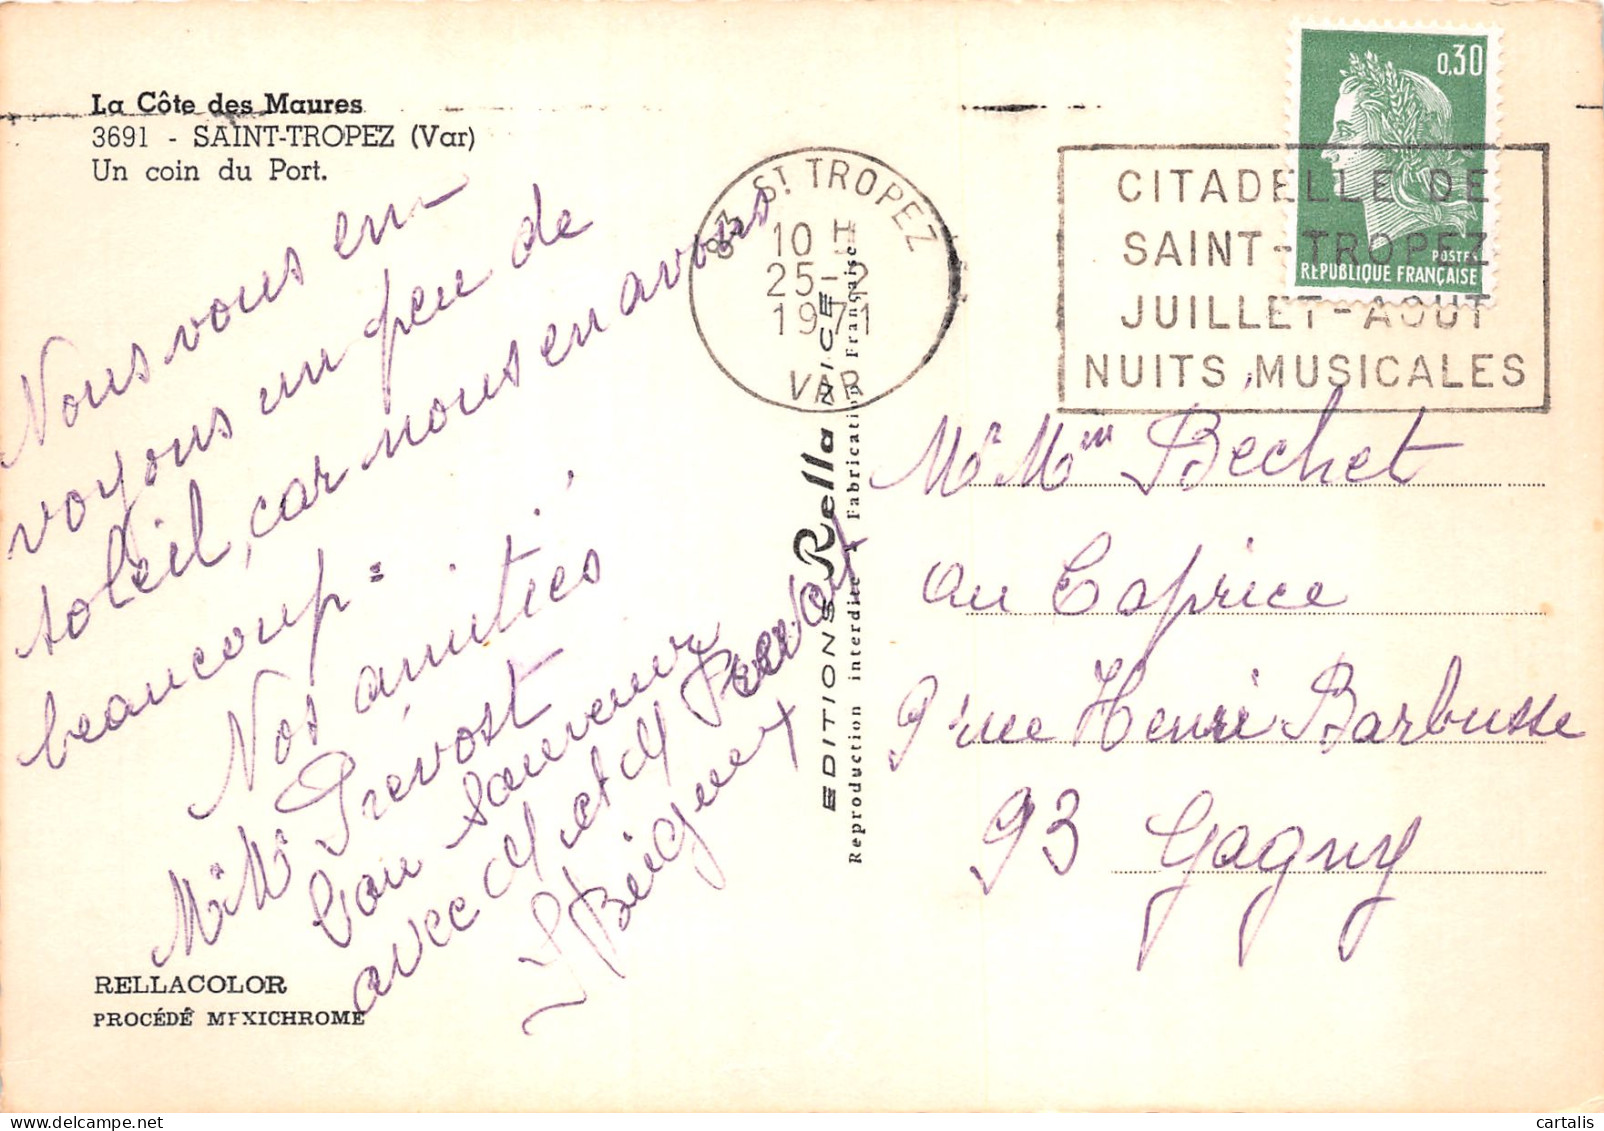 La Côte des Maures
3691 - SAINT-TROPEZ (Var)
Un coin du Port.
Nous vous en-
voyons un peu de
soleil, car nous en avons
beaucoup.
Nos amitiés
M. Mme Prévost
Bon souvenir
avec M et M Prévost
Y Beigneux
RELLACOLOR
PROCÉDÉ MEXICHROME
EDITIONS Rella NICE
Reproduction interdite - Fabrication Française
83 ST TROPEZ
10 H
25-2
1971
VAR
CITADELLE DE
SAINT-TROPEZ
JUILLET-AOUT
NUITS MUSICALES
0,30
POSTES
RÉPUBLIQUE FRANÇAISE
Mr Mme Béchet
au Caprice
9 rue Henri Barbusse
93 Gagny
cartalis
www.delcampe.net